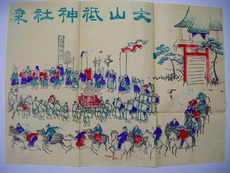 大山祇神社祭